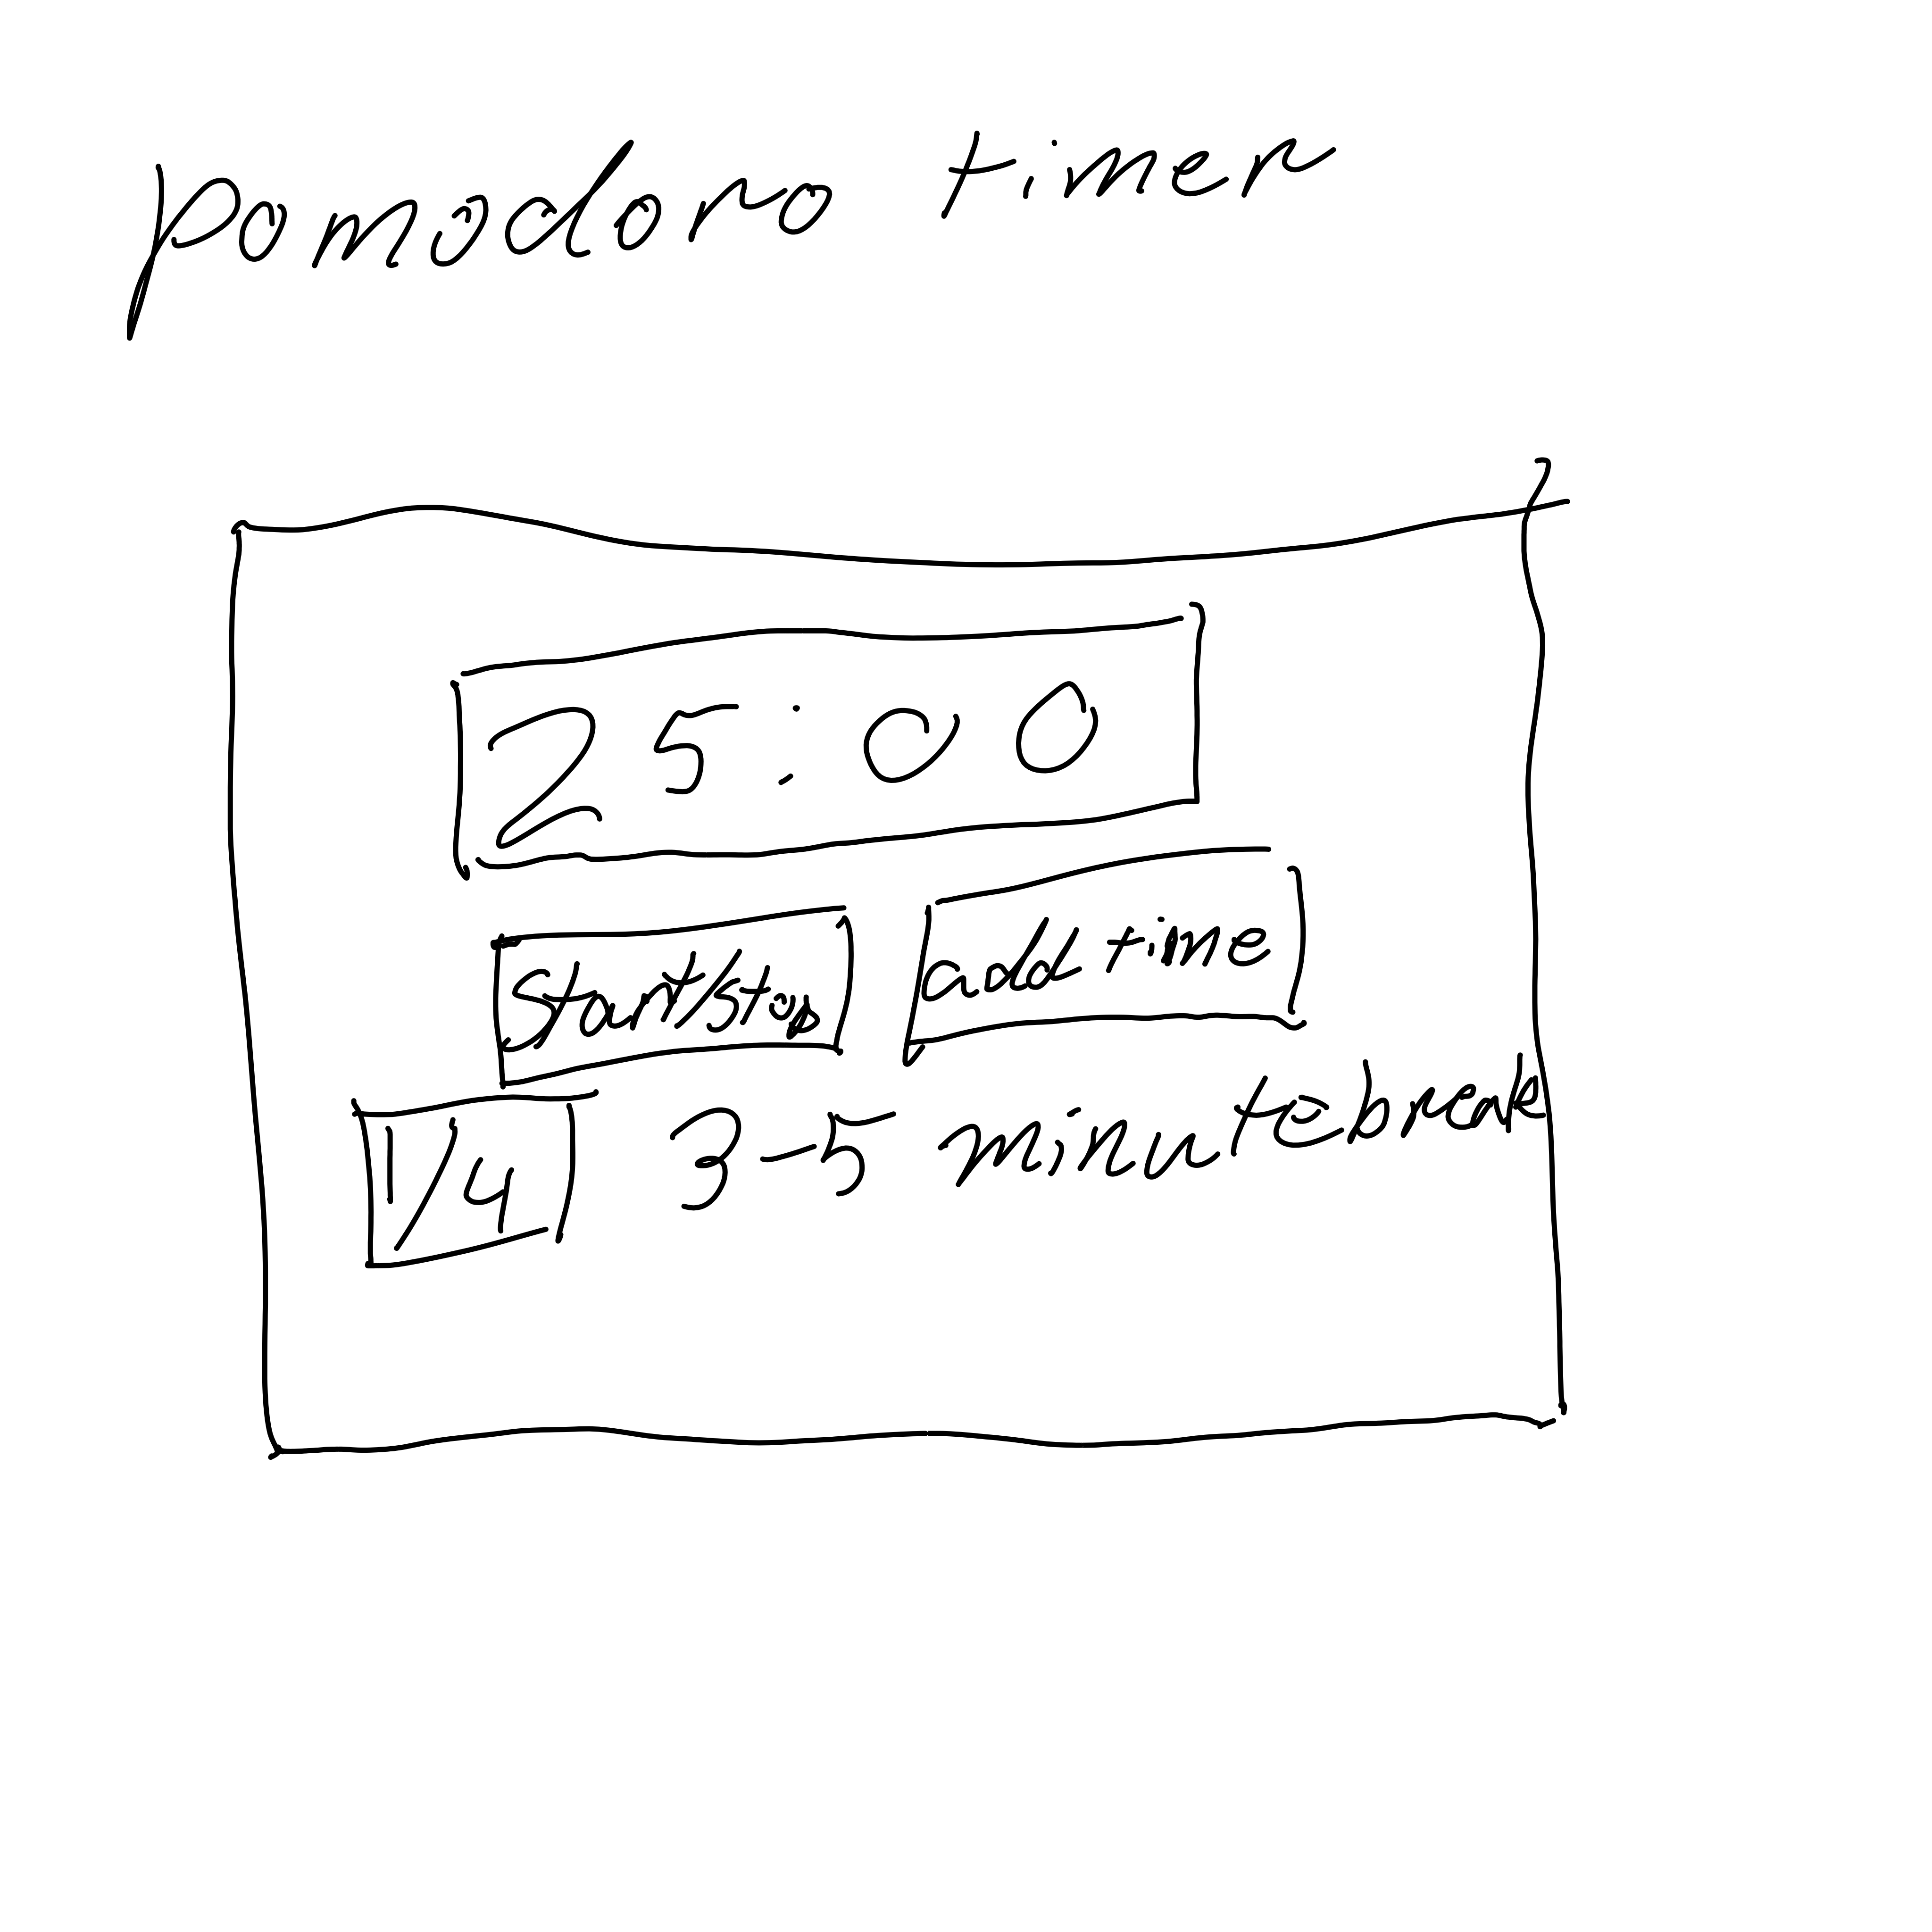 pomodoro timer
25:00
start/stop
add time
1/4
3-5 minute break